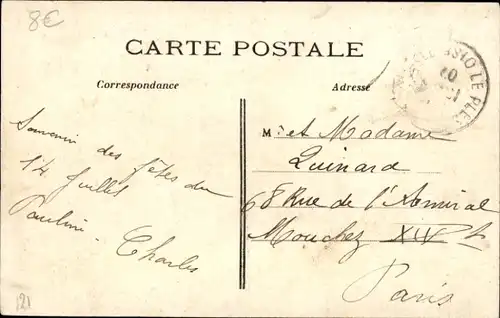 8€
CARTE POSTALE
Correspondance
Adresse
LE PLE
Souvenir des fêtes du
14 Juillet
Paulin - Charles
M. et Madame
Quinard
68 Rue de l'Amiral
Mouchez XIV
Paris
121